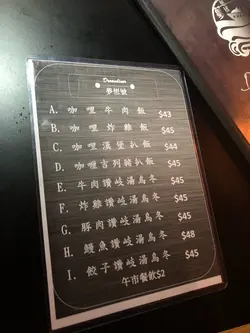 Dreamliner
夢想號
A. 咖哩牛肉飯 $43
B. 咖哩炸雞飯 $45
C. 咖哩漢堡扒飯 $44
D. 咖哩吉列豬扒飯 $45
E. 牛肉讚岐湯烏冬 $45
F. 炸雞讚岐湯烏冬 $45
G. 豚肉讚岐湯烏冬 $45
H. 鰻魚讚岐湯烏冬 $48
I. 餃子讚岐湯烏冬 $45
午市餐飲$2